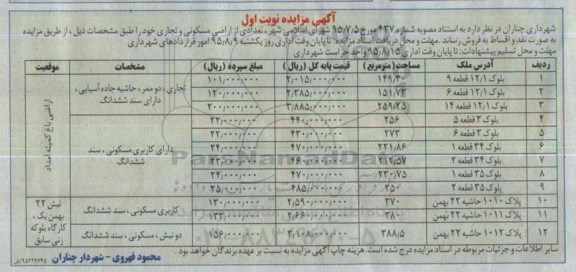 آگهی مزایده نوبت اول
شهرداری چناران در نظر دارد به استناد مصوبه شماره ۴۳۷ مورخ ۹۵/۷/۵ شورای اسلامی شهر، تعدادی از اراضی مسکونی و تجاری خود را طبق مشخصات ذیل، از طریق مزایده
به صورت نقد و اقساط به فروش رساند. مهلت و محل دریافت اسناد مزایده: تا پایان وقت اداری روز یکشنبه ۹۵/۸/۹ امور قراردادهای شهرداری
مهلت و محل تسلیم پیشنهادات: تا پایان وقت اداری ۹۵/۸/۱۵ واحد حراست شهرداری
ردیف آدرس ملک مساحت (مترمربع) قیمت پایه کل (ریال) مبلغ سپرده (ریال) مشخصات موقعیت
۱ بلوک ۱۲/۱ قطعه ۹ ۱۴۹/۳۰ ۲/۰۱۵/۰۰۰/۰۰۰ ۱۰۱/۰۰۰/۰۰۰ تجاری، دو ممر، حاشیه جاده آسیایی، دارای سند ششدانگ اراضی باغ کمیته امداد
۲ بلوک ۱۲/۱ قطعه ۶ ۱۵۱/۷۳ ۲/۳۸۵/۰۰۰/۰۰۰ ۱۲۰/۰۰۰/۰۰۰
۳ بلوک ۱۲/۱ قطعه ۱۴ ۲۵۹/۲۵ ۳/۸۸۵/۰۰۰/۰۰۰ ۲۰۰/۰۰۰/۰۰۰
۴ بلوک ۲ قطعه ۵ ۲۵۶ ۴۴۰/۰۰۰/۰۰۰ ۲۲/۰۰۰/۰۰۰ دارای کاربری مسکونی، سند ششدانگ
۵ بلوک ۲ قطعه ۶ ۲۷۳ ۴۳۰/۰۰۰/۰۰۰
۶ بلوک ۳۴ قطعه ۱ ۲۲۱/۸۶ ۴۷۰/۰۰۰/۰۰۰ ۲۴/۰۰۰/۰۰۰
۷ بلوک ۳۴ قطعه ۲ ۲۱۲/۵۷
۸ بلوک ۳۵ قطعه ۱ ۲۳۰/۷۵ ۴۷۰/۰۰۰/۰۰۰ ۲۴/۰۰۰/۰۰۰
۹ بلوک ۳۵ قطعه ۲ ۲۵۰ ۴۸۵/۰۰۰/۰۰۰ ۲۵/۰۰۰/۰۰۰
۱۰ پلاک ۱۰۱۰ حاشیه ۲۲ بهمن ۳۷۰ ۲/۵۹۰/۰۰۰/۰۰۰ ۱۳۰/۰۰۰/۰۰۰ کاربری مسکونی، سند ششدانگ نبش ۲۲ بهمن یک، کارگاه بلوکه زنی سابق
۱۱ پلاک ۱۰۱۱ حاشیه ۲۲ بهمن ۳۸۰ ۲/۶۶۰/۰۰۰/۰۰۰ ۱۳۳/۰۰۰/۰۰۰
۱۲ پلاک ۱۰۱۲ حاشیه ۲۲ بهمن ۳۸۸/۵ ۳/۱۰۸/۰۰۰/۰۰۰ ۱۵۶/۰۰۰/۰۰۰ دو نبش، مسکونی، سند ششدانگ
سایر اطلاعات و جزئیات مربوطه در اسناد مزایده درج شده است. هزینه چاپ آگهی مزایده به نسبت بر عهده برندگان خواهد بود.
محمود قهروی - شهردار چناران